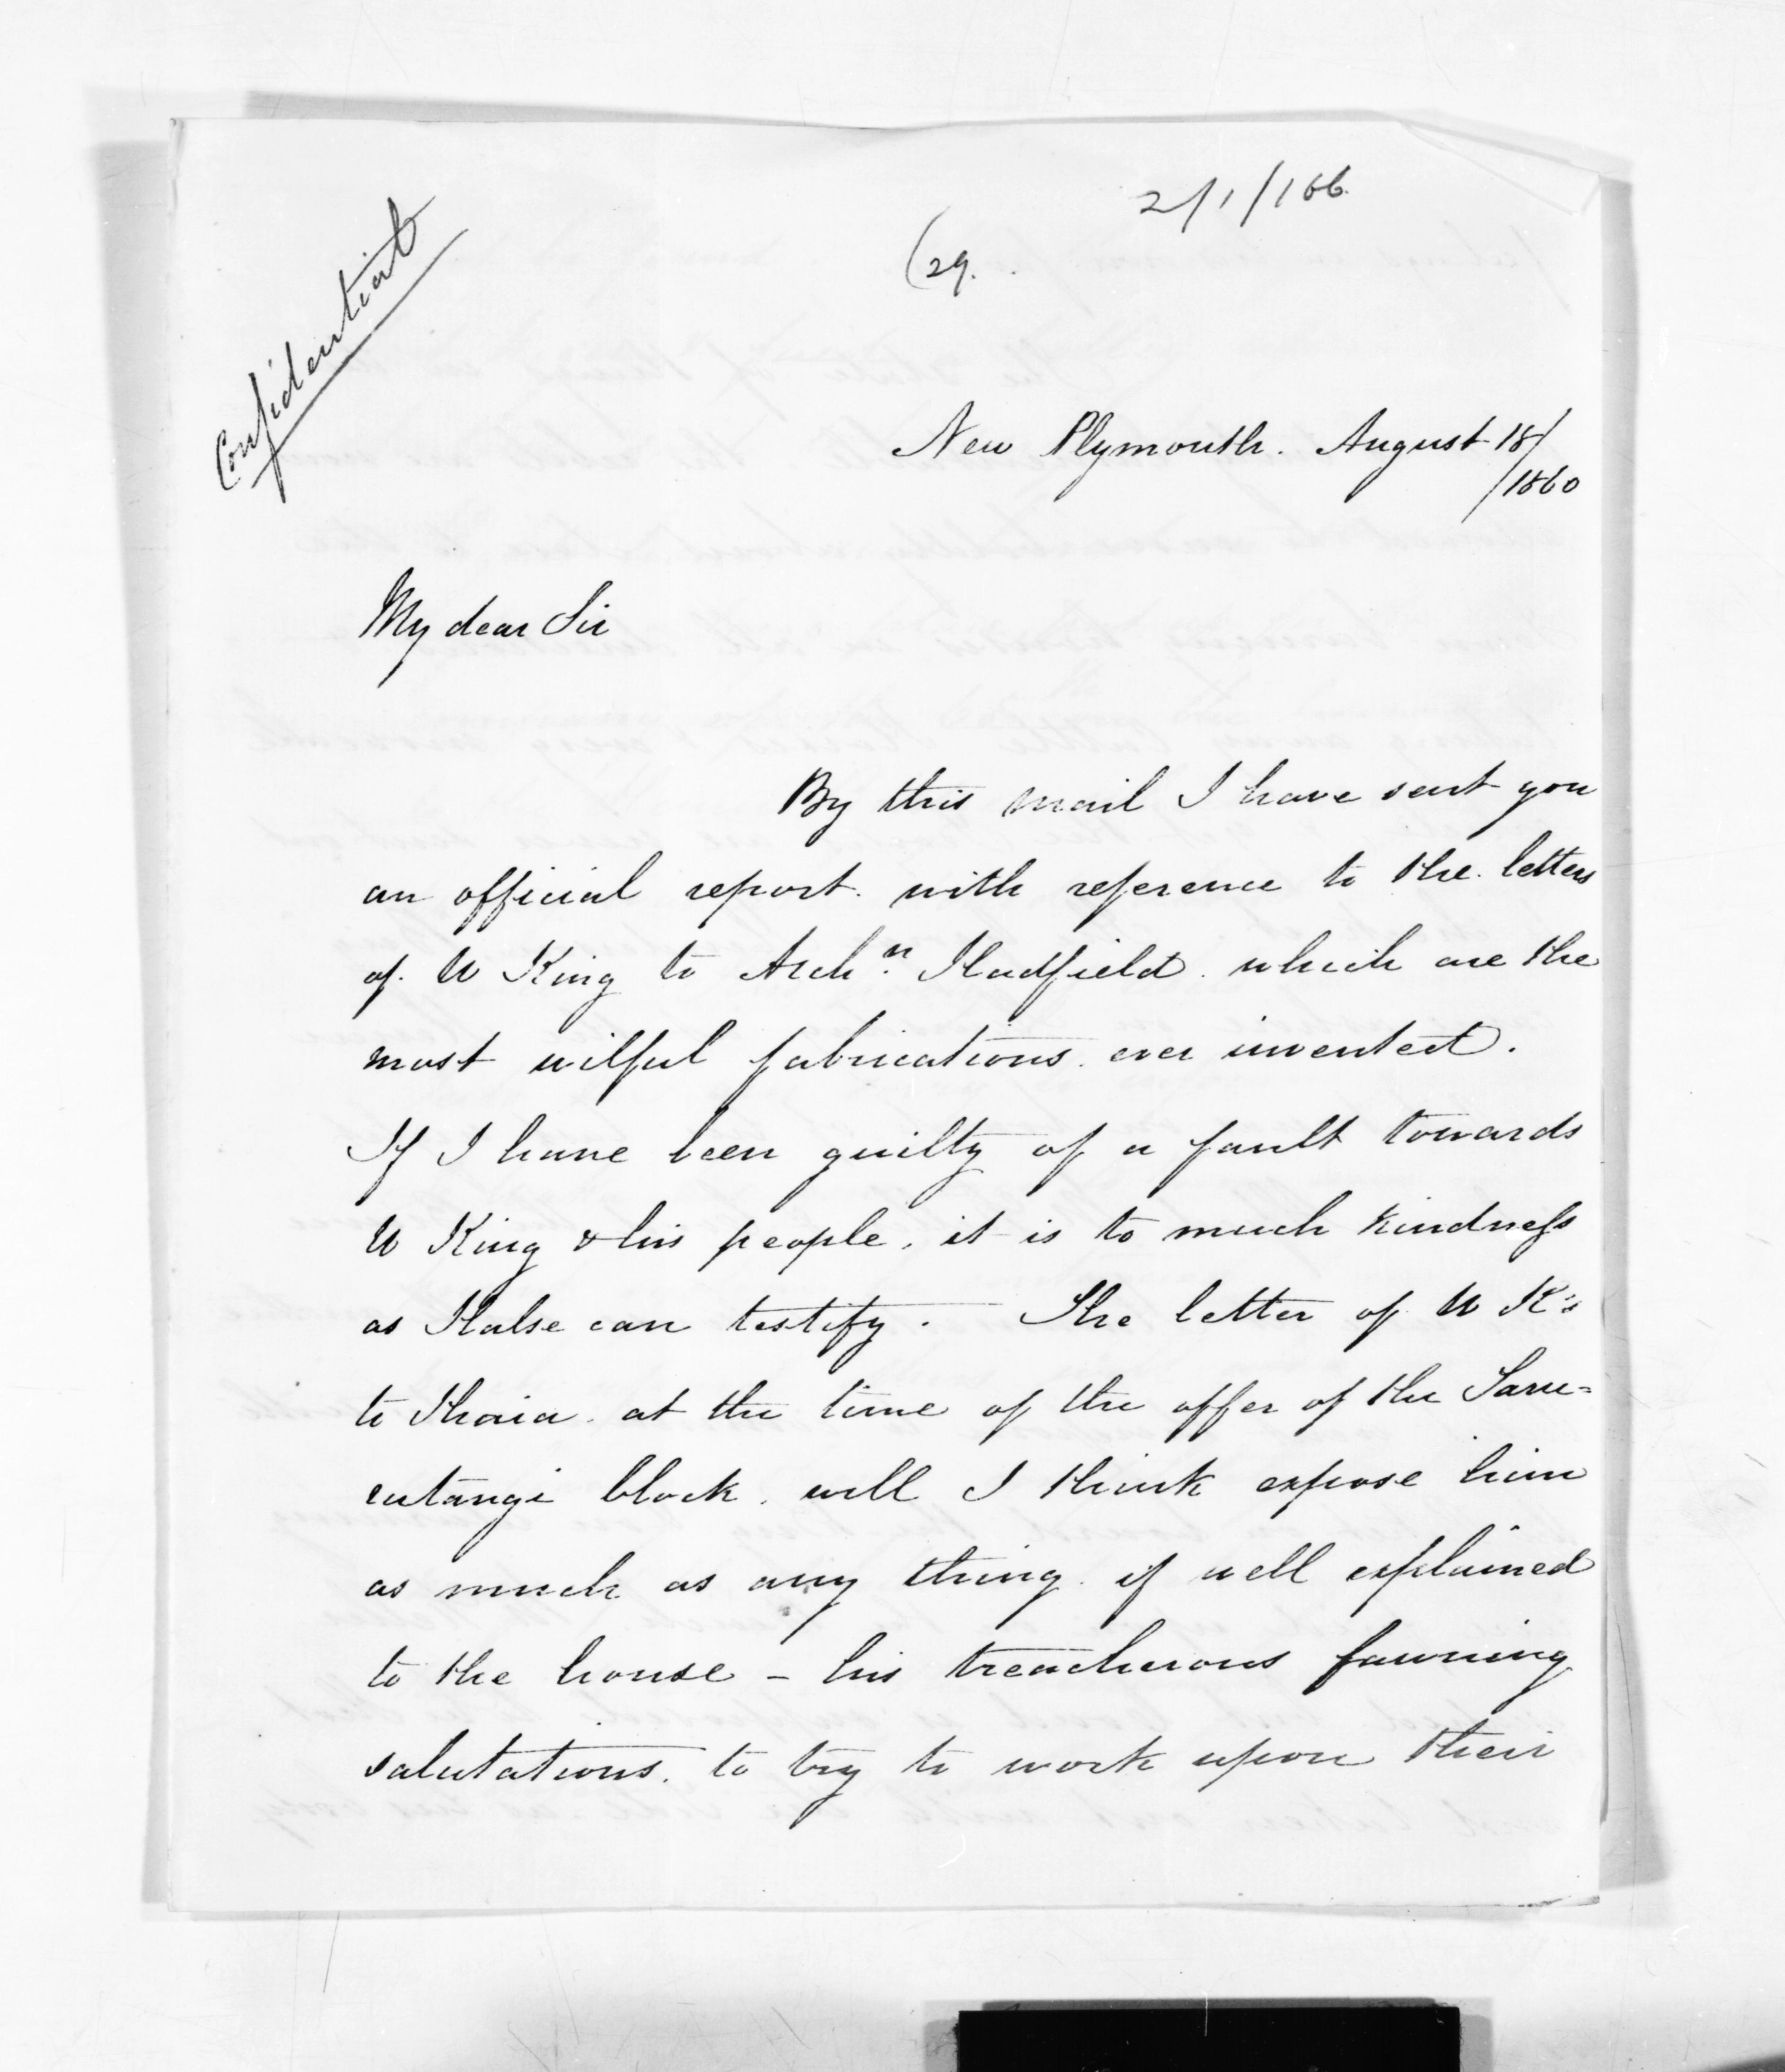 Confidential
2/1/166.
(29.
New Plymouth. August 18/
/1860
My dear Sir
By this mail I have sent you
an official report. with reference to the letters
of W King to Archn. Hadfield. which are the
most wilful fabrications. ever invented.
If I have been guilty of a fault towards
W King & his people, it is to much kindness
as Halse can testify. The letter of W K's
to Ihaia. at the time of the offer of the Taru=
rutangi block. will I think expose him
as much as any thing. if well explained
to the house - his treacherous fawning
salutations. to try to work upon their